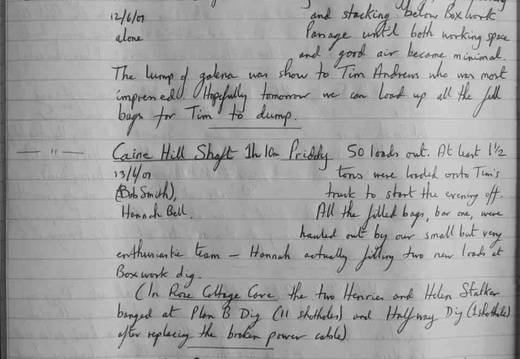 12/6/01 and stacking below Boxwork
alone Passage until both working space
and good air became minimal.
The lump of galena was show to Tim Andrews who was most
impressed. Hopefully tomorrow we can load up all the full
bags for Tim to dump.
— " — Caine Hill Shaft 1h 10m Priddy 50 loads out. At least 1½
13/6/01 tons were loaded onto Tim's
(Bob Smith), truck to start the evening off.
Hannah Bell. All the filled bags, bar one, were
hauled out by our small but very
enthusiastic team – Hannah actually filling two new loads at
Boxwork dig.
(In Rose Cottage Cave the two Henries and Helen Stalker
banged at Plan B Dig (11 shotholes) and Halfway Dig (1 shothole)
after replacing the broken power cable)